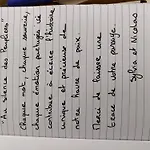 "Au silence des Peupliers"
Chaque mot, chaque souvenir,
chaque émotion partagée ici
contribue à écrire l'histoire
unique et précieuse de
notre havre de paix.
Merci de laisser une
trace de votre passage.
Sylvia et Nicolas